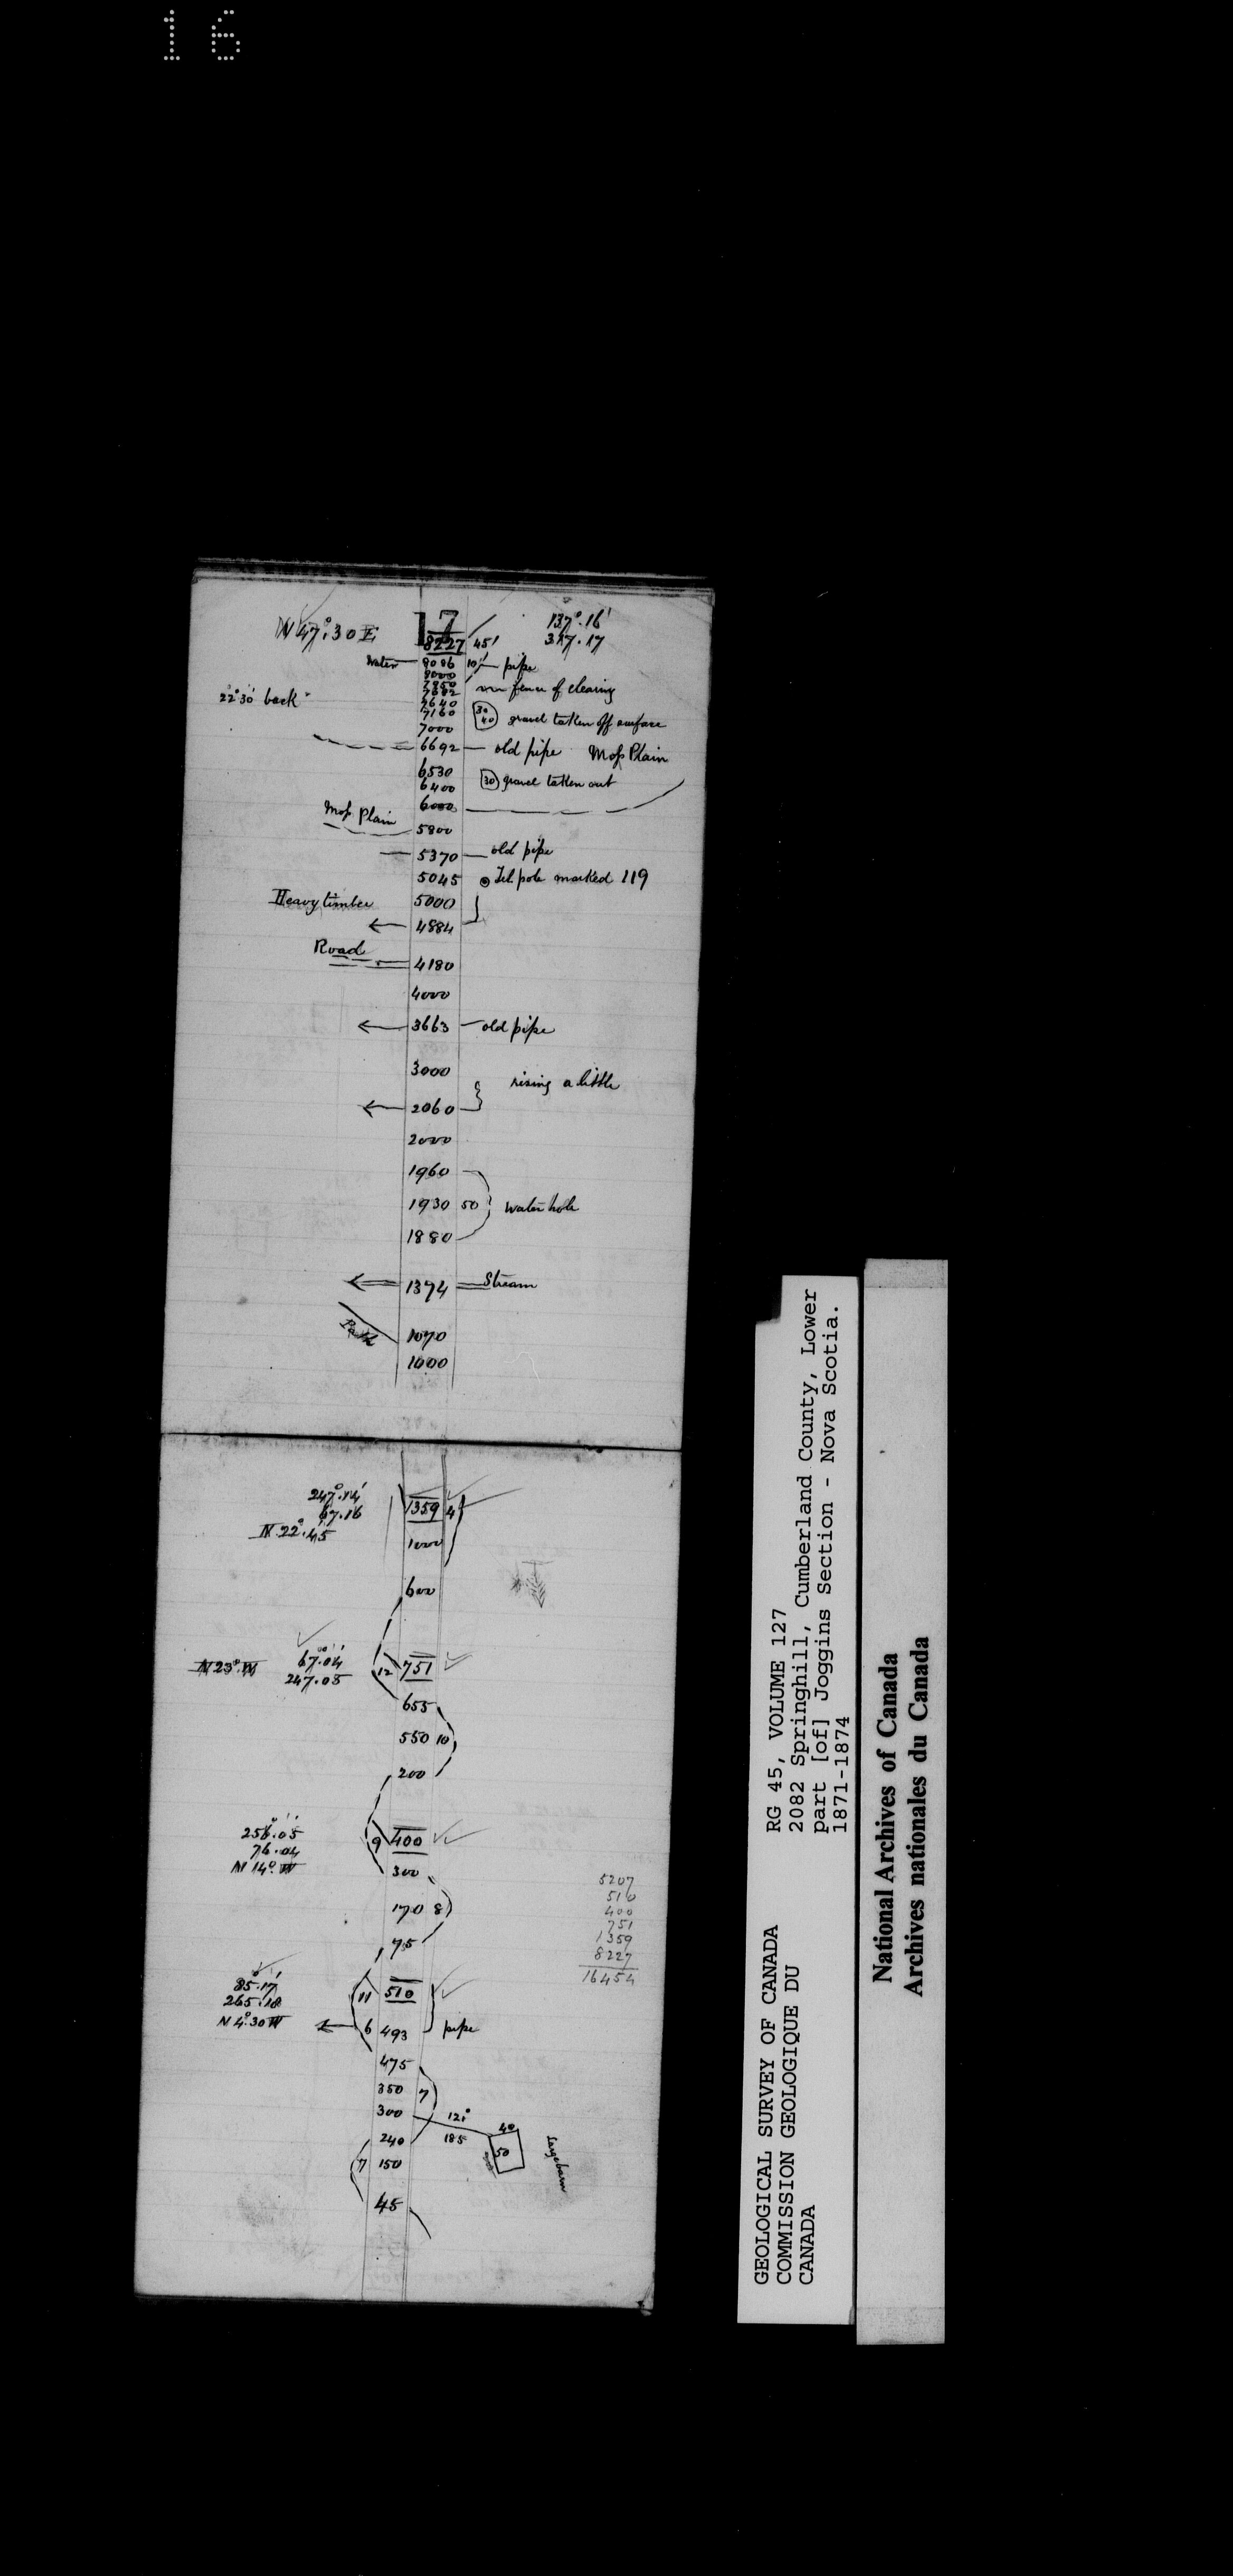 16
N 47°.30 E 17 137°.16'
8227 45' 317.17
Water 8086 10' pipe
8000
7850
7682 fence of clearing
22°30' back 7640
7160 30 40 gravel taken off surface
7000
6692 old pipe Moss Plain
6530
6400 30 gravel taken out
6000
Moss Plain
5800
5370 old pipe
5045 Tel. pole marked 119
Heavy timber 5000
4884
Road
4180
4000
3663 old pipe
3000
rising a little
2060
2000
1960
1930 50 Water hole
1880
1374 Stream
Path 1070
1000
247°.14'
67.16 1359 4
N 22°.45 1000
600
N 23° W 67°.04' 12 751
247.05
655
550 10
200
256°.05'
76.04 9 400
N 14° W 300
170 8
75
85°.17' 11 510
265.18
N 4°.30 W 6 493 pipe
475
350 7
300 121°
240 185 40
50
Large barn
7 150
45
5207
510
400
751
1359
8227
16454
GEOLOGICAL SURVEY OF CANADA
COMMISSION GEOLOGIQUE DU
CANADA
RG 45, VOLUME 127
2082 Springhill, Cumberland County, Lower
part [of] Joggins Section - Nova Scotia.
1871-1874
National Archives of Canada
Archives nationales du Canada